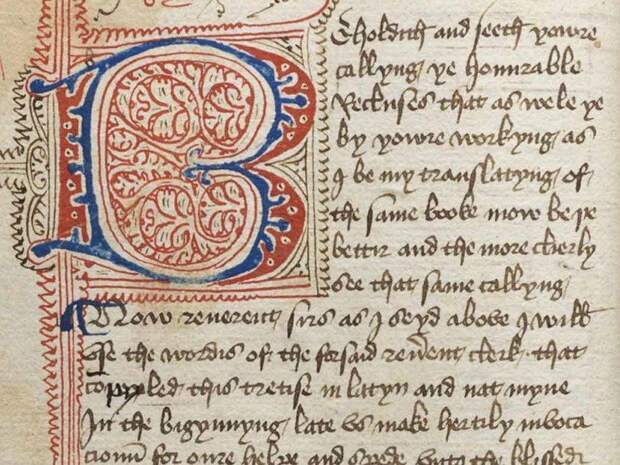 Beholdith and seeth yowre
callyng ye honurable
Recluses that as wele ye
by yowre workyng as
I be my translatyng of
the same booke mow be þe
bettir and the more clerly
see that same callyng
Now reuerent sirs as I seyd above I will
vse the wordis of the forsaid reuerent clerk that
compyled this tretise in latyn and nat myne
In the bigynnyng late vs make hertily invoca
cioun for oure helpe and spede vnto the blissed